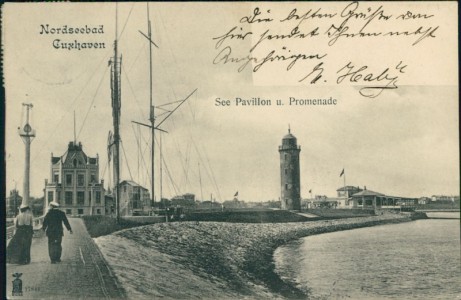 Nordseebad
Cuxhaven
Die besten Grüße von
hier sendet Ihnen nebst
Angehörigen
See Pavillon u. Promenade